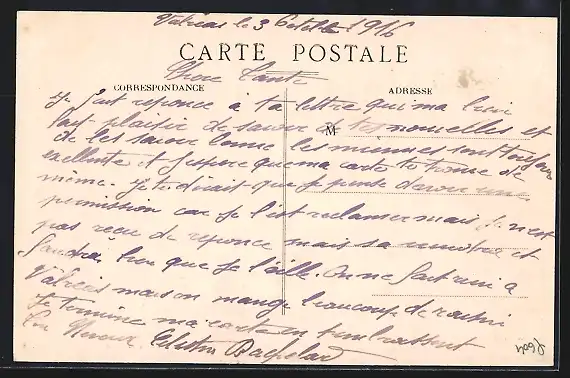 Valréas le 3 Octobre 1916
CARTE POSTALE
Chère Tante
CORRESPONDANCE
ADRESSE
Je fait réponce à ta lettre qui ma bien
fait plaisir de savoir de tes nouvelles et
M
de les savoir bonne les miennes sont toujours
excellente et J'espère que ma carte te trouve de
même. Je te dirait que Je pense d'avoir une
permission car Je l'est reclamer mais Je n'est
pas reçu de réponce mais sa viendra et
faudra bien que Je l'aille. On ne fait rien a
Valréas mais on mange beaucoup de raisin
Je termine ma carte en t'embrassant
Ton Neveu Célestin Bachelard